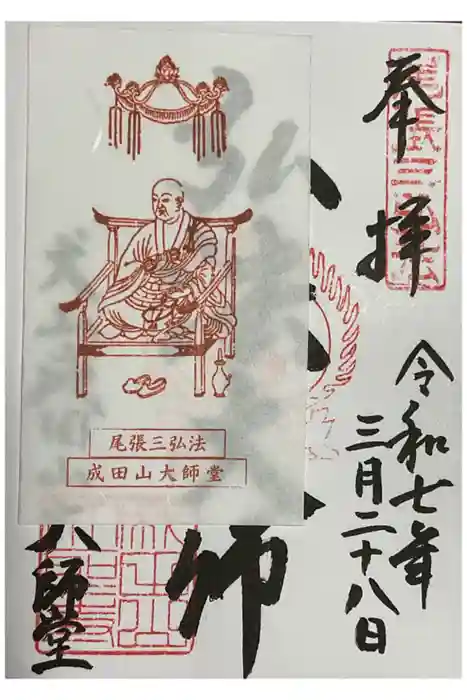 奉拝
尾張三弘法
令和七年
三月二十八日
弘法大師
大師堂
尾張三弘法
成田山大師堂